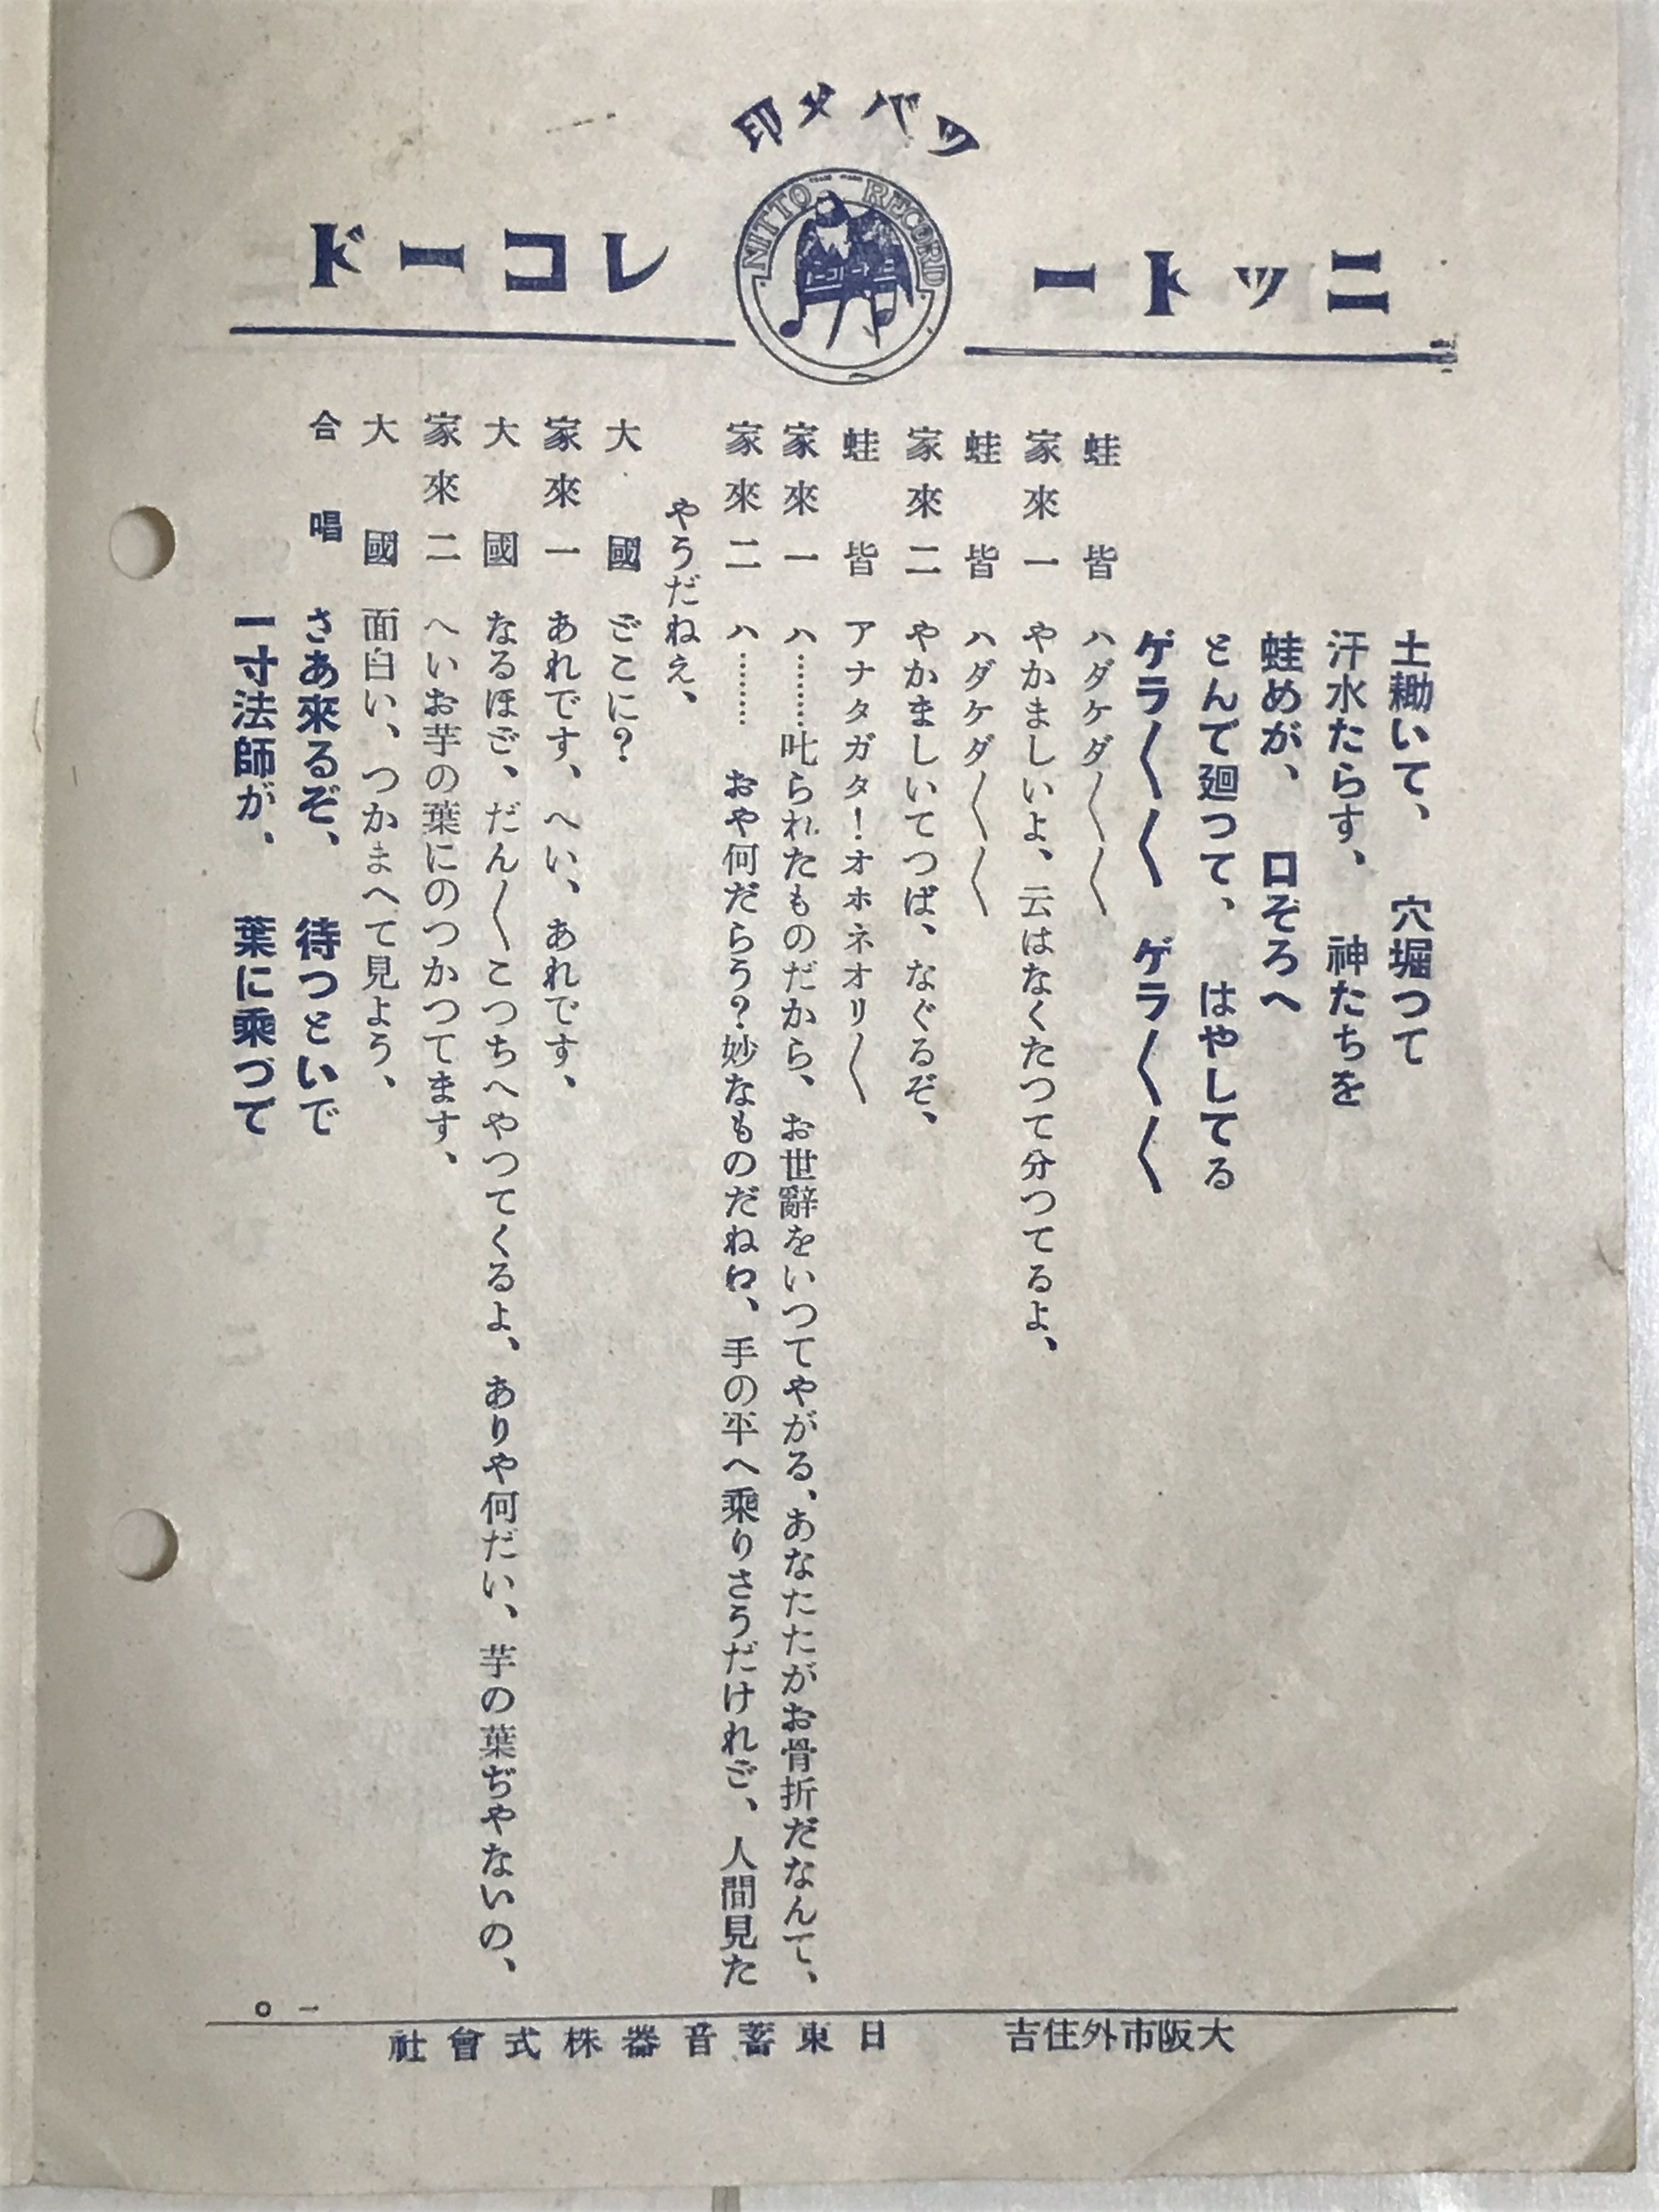 ツバメ印
NITTO RECORD
TRADE MARK
ニットー レコード
土耡いて、 穴堀つて
汗水たらす、 神たちを
蛙めが、 口ぞろへ
とんで廻つて、 はやしてる
ゲラ〱〱 ゲラ〱〱
蛙皆 ハダケダ〱〱
家來一 やかましいよ、云はなくたつて分つてるよ、
蛙皆 ハダケダ〱〱
家來二 やかましいてつば、なぐるぞ、
蛙皆 アナタガタ!オホネオリ〱
家來一 ハ………叱られたものだから、お世辭をいつてやがる、あなたたがお骨折だなんて、
家來二 ハ……… おや何だらう?妙なものだねロ、手の平へ乘りさうだけれご、人間見た
やうだねえ、
大國 ごこに?
家來一 あれです、へい、あれです、
大國 なるほご、だん〱こつちへやつてくるよ、ありや何だい、芋の葉ぢやないの、
家來二 へいお芋の葉にのつかつてます、
大國 面白い、つかまへて見よう、
合唱 さあ來るぞ、 待つといで
一寸法師が、 葉に乘つて
一〇
大阪市外住吉 日東蓄音器株式會社